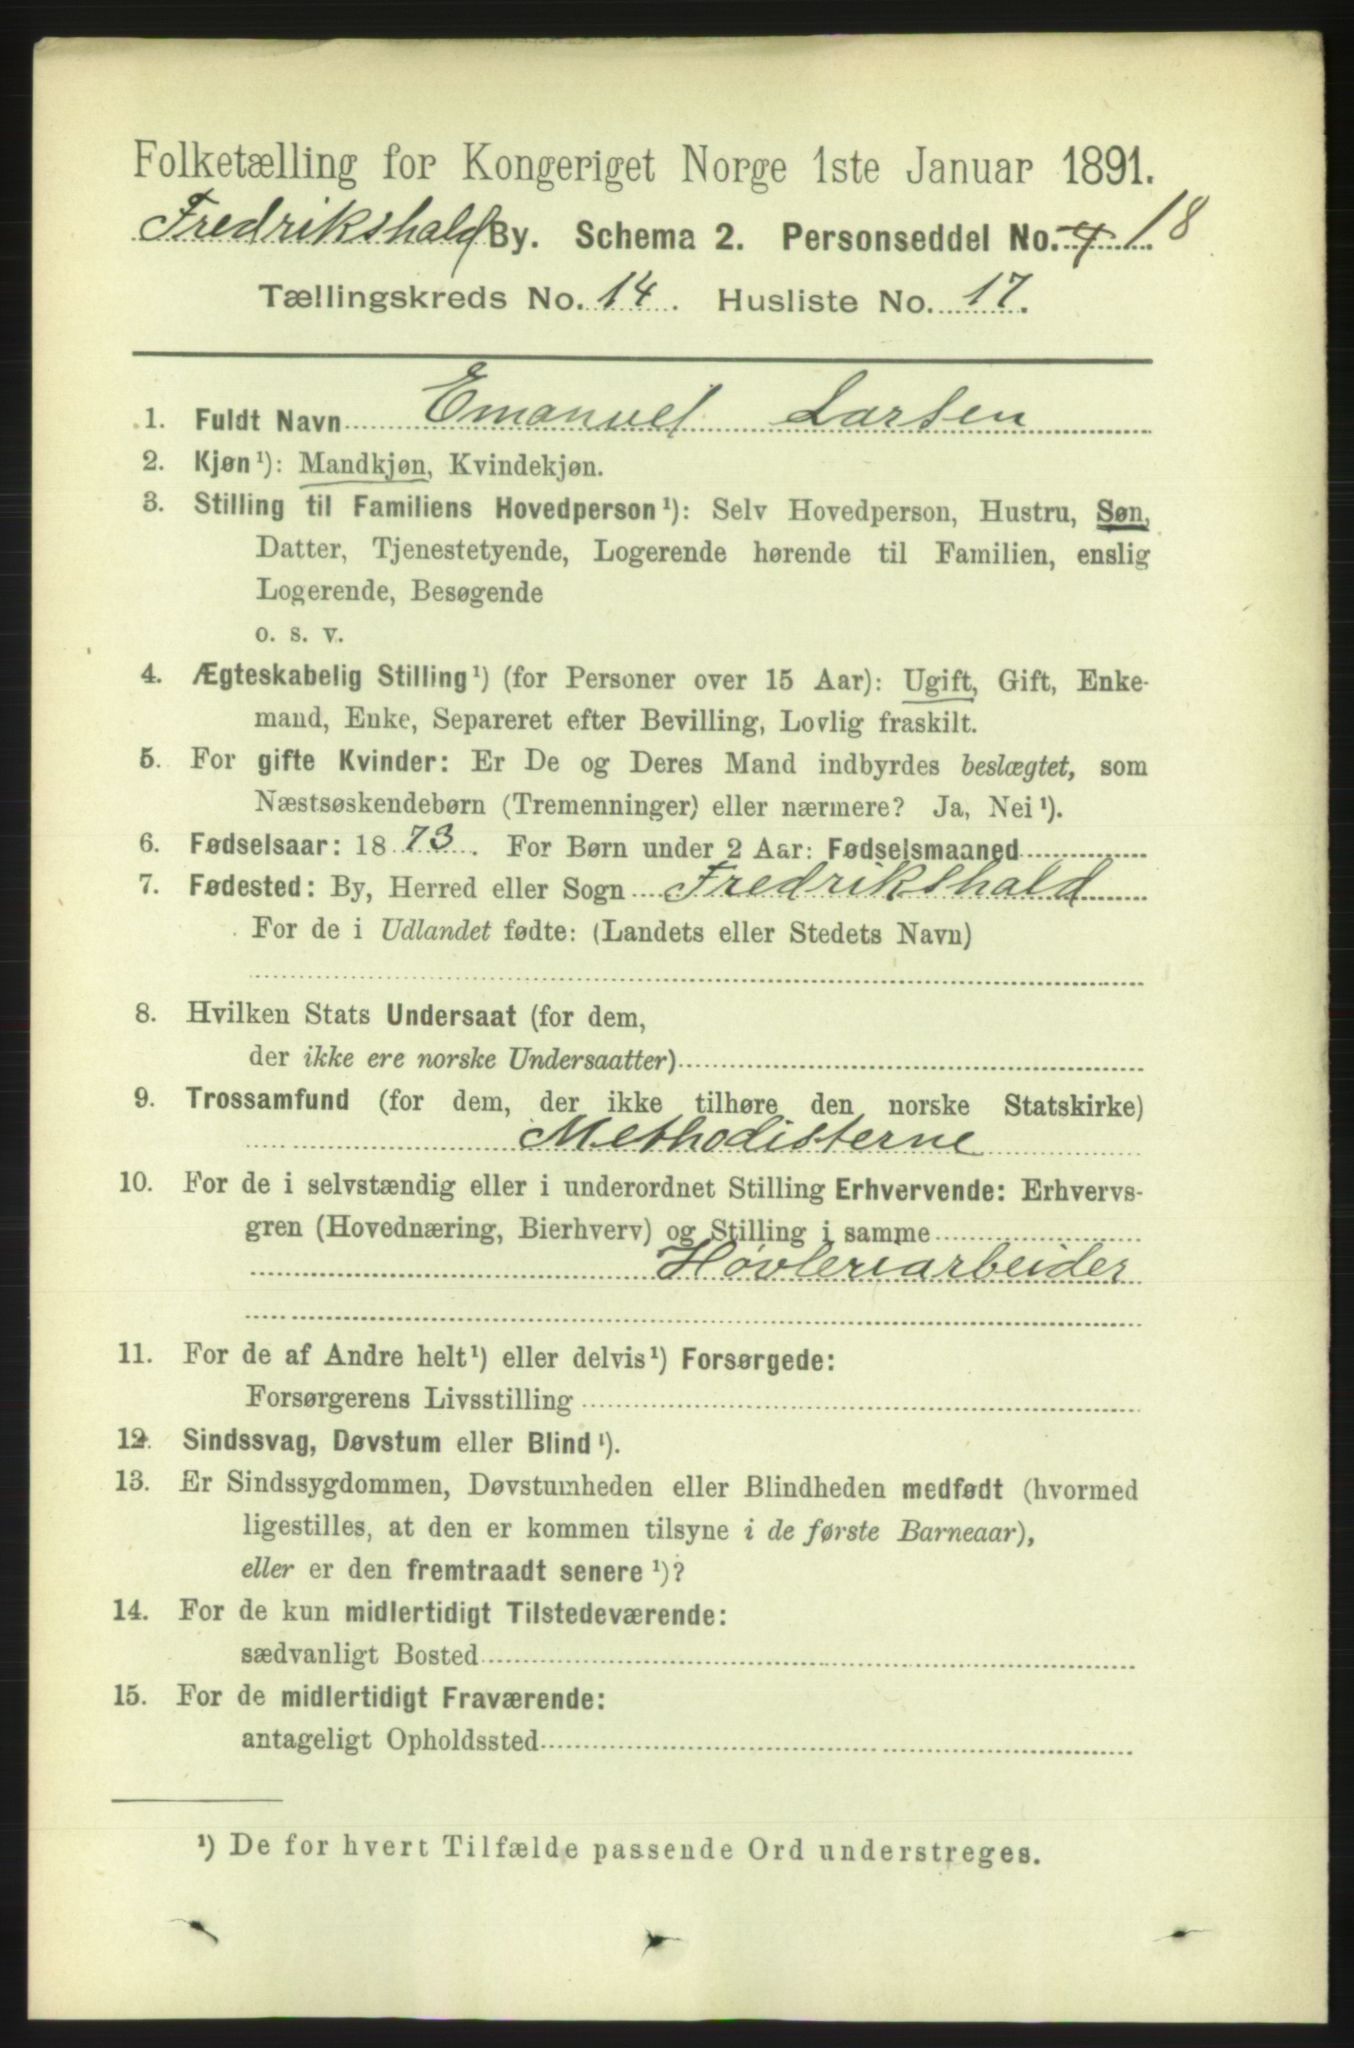 Folketælling for Kongeriget Norge 1ste Januar 1891.
Fredrikshald By. Schema 2. Personseddel No. 4 18
Tællingskreds No. 14. Husliste No. 17.
1. Fuldt Navn Emanuel Larsen
2. Kjøn¹): Mandkjøn, Kvindekjøn.
3. Stilling til Familiens Hovedperson¹): Selv Hovedperson, Hustru, Søn,
Datter, Tjenestetyende, Logerende hørende til Familien, enslig
Logerende, Besøgende
o. s. v.
4. Ægteskabelig Stilling¹) (for Personer over 15 Aar): Ugift, Gift, Enke-
mand, Enke, Separeret efter Bevilling, Lovlig fraskilt.
5. For gifte Kvinder: Er De og Deres Mand indbyrdes beslægtet, som
Næstsøskendebørn (Tremenninger) eller nærmere? Ja, Nei¹).
6. Fødselsaar: 1873. For Børn under 2 Aar: Fødselsmaaned
7. Fødested: By, Herred eller Sogn Fredrikshald
For de i Udlandet fødte: (Landets eller Stedets Navn)
8. Hvilken Stats Undersaat (for dem,
der ikke ere norske Undersaatter)
9. Trossamfund (for dem, der ikke tilhøre den norske Statskirke)
Methodisterne
10. For de i selvstændig eller i underordnet Stilling Erhvervende: Erhvervs-
gren (Hovednæring, Bierhverv) og Stilling i samme
Høvleriarbeider
11. For de af Andre helt¹) eller delvis¹) Forsørgede:
Forsørgerens Livsstilling
12. Sindssvag, Døvstum eller Blind¹).
13. Er Sindssygdommen, Døvstumheden eller Blindheden medfødt (hvormed
ligestilles, at den er kommen tilsyne i de første Barneaar),
eller er den fremtraadt senere¹)?
14. For de kun midlertidigt Tilstedeværende:
sædvanligt Bosted
15. For de midlertidigt Fraværende:
antageligt Opholdssted
¹) De for hvert Tilfælde passende Ord understreges.